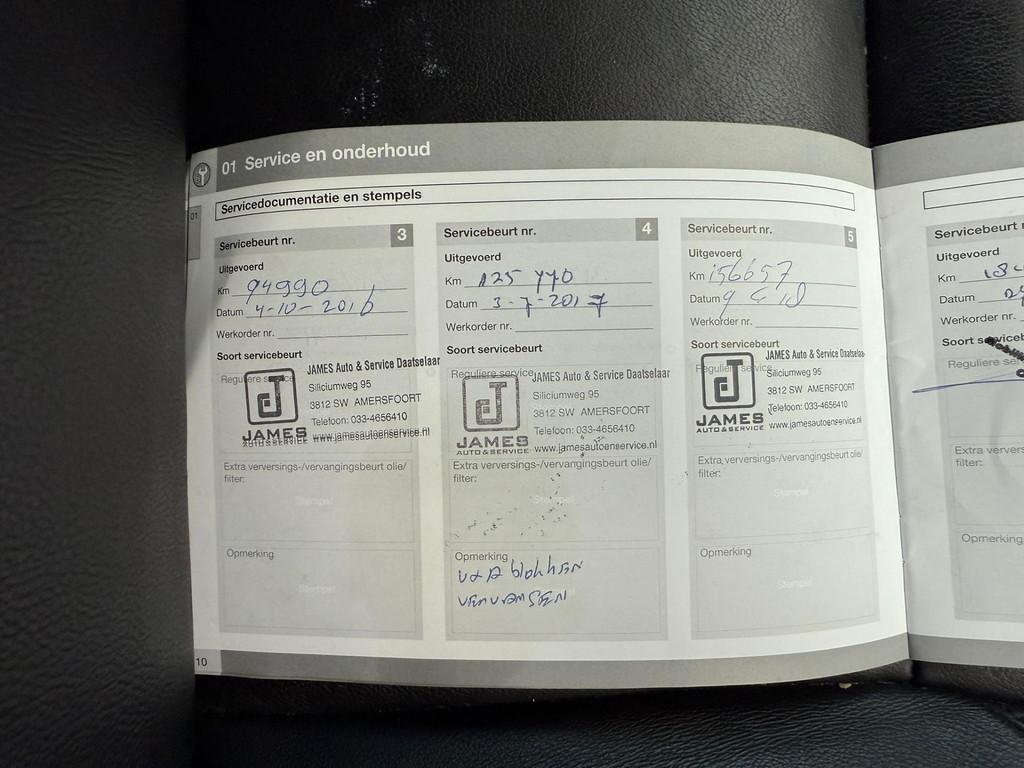 01 Service en onderhoud
01
Servicedocumentatie en stempels
Servicebeurt nr. 3
Uitgevoerd
Km 94990
Datum 4-10-2016
Werkorder nr.
Soort servicebeurt
Reguliere service
JAMES Auto & Service Daatselaar
Siliciumweg 95
3812 SW AMERSFOORT
Telefoon: 033-4656410
www.jamesautoenservice.nl
J
JAMES
AUTO & SERVICE
Extra verversings-/vervangingsbeurt olie/
filter:
Stempel
Opmerking
Stempel
Servicebeurt nr. 4
Uitgevoerd
Km 125 770
Datum 3-7-2017
Werkorder nr.
Soort servicebeurt
Reguliere service
JAMES Auto & Service Daatselaar
Siliciumweg 95
3812 SW AMERSFOORT
Telefoon: 033-4656410
www.jamesautoenservice.nl
J
JAMES
AUTO & SERVICE
Extra verversings-/vervangingsbeurt olie/
filter:
Stempel
Opmerking
V+A blokken
vervangen
Servicebeurt nr. 5
Uitgevoerd
Km 156657
Datum 9 4 18
Werkorder nr.
Soort servicebeurt
Reguliere service
JAMES Auto & Service Daatselaar
Siliciumweg 95
3812 SW AMERSFOORT
Telefoon: 033-4656410
www.jamesautoenservice.nl
J
JAMES
AUTO & SERVICE
Extra verversings-/vervangingsbeurt olie/
filter:
Stempel
Opmerking
Stempel
10
Servicebeurt
Uitgevoerd
Km
Datum
Werkorder nr.
Soort
Reguliere
Extra
filter:
Opmerking